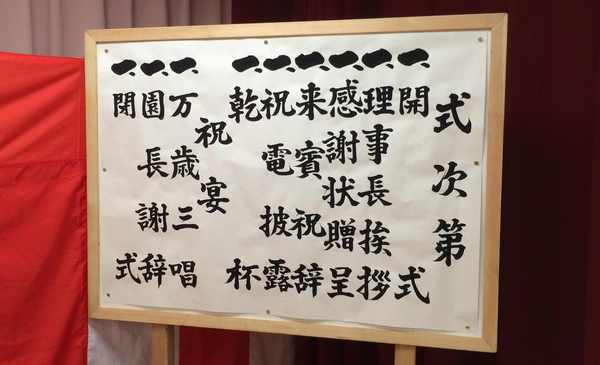 式次第
一、開式
一、理事長挨拶
一、感謝状贈呈
一、来賓祝辞
一、祝電披露
一、乾杯
祝宴
一、万歳三唱
一、園長謝辞
一、閉式